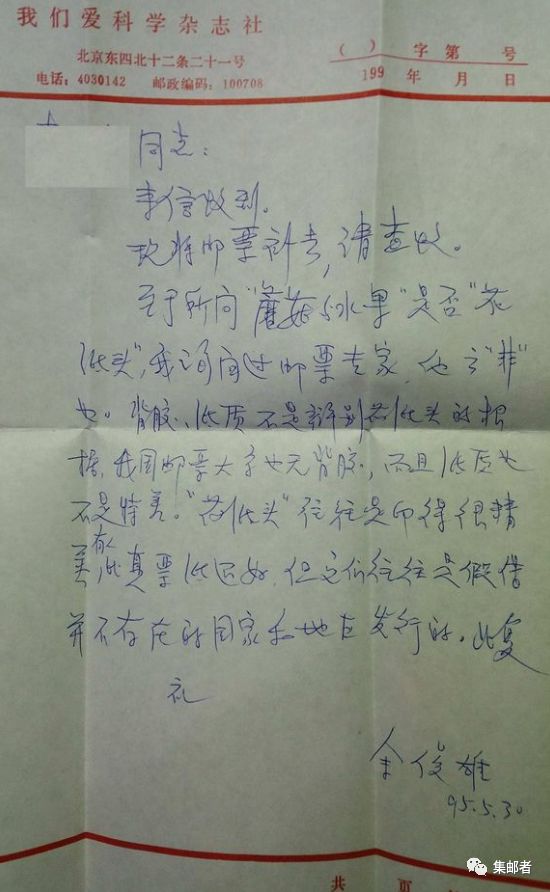 我们爱科学杂志社
北京东四北十二条二十一号
电话：4030142 邮政编码：100708
（ ）字第 号
199 年 月 日
同志：
来信收到。
现将邮票补去，请查收。
至于所问“蘑菇与水果”是否“花
纸头”，我询问过邮票专家，他言“非”
也。背胶、纸质不是辨别花纸头的根
据，我国邮票大多也无背胶，而且纸质也
不是特差。“花纸头”往往是印得很精
美，有些比真票纸还好，但它们往往是假借
并不存在的国家和地区发行的。此复
礼
余俊雄
95.5.30
共 页
集邮者